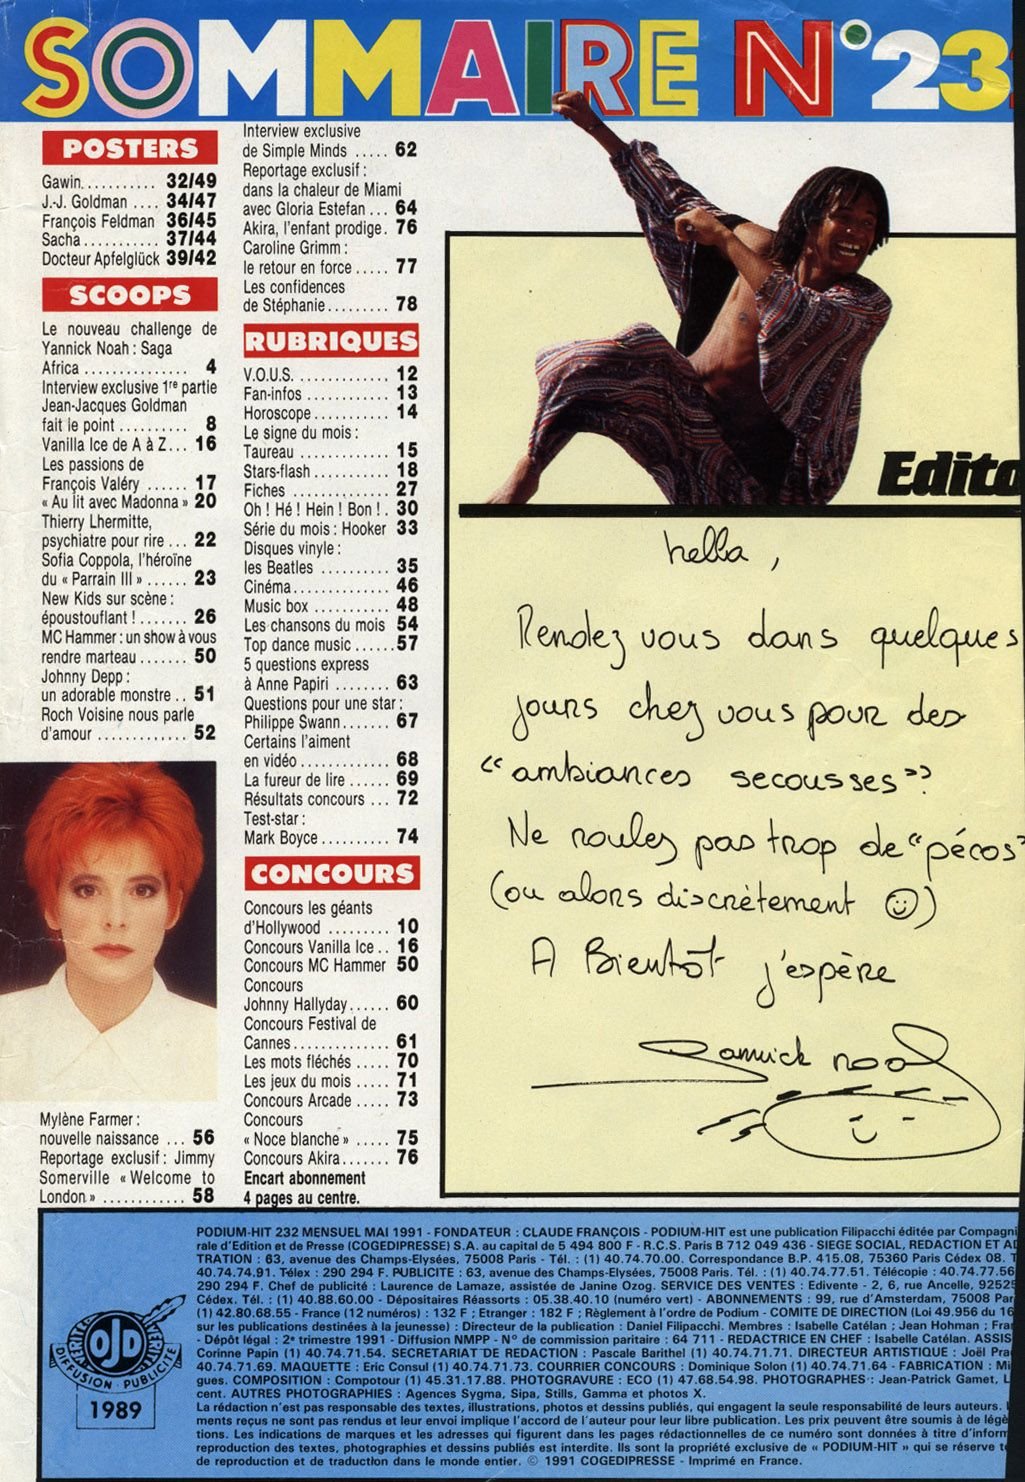 SOMMAIRE N°23
POSTERS
Gawin........... 32/49
J.-J. Goldman .... 34/47
François Feldman 36/45
Sacha........... 37/44
Docteur Apfelglück 39/42
SCOOPS
Le nouveau challenge de
Yannick Noah : Saga
Africa .............. 4
Interview exclusive 1re partie
Jean-Jacques Goldman
fait le point .......... 8
Vanilla Ice de A à Z... 16
Les passions de
François Valéry ...... 17
« Au lit avec Madonna » 20
Thierry Lhermitte,
psychiatre pour rire ... 22
Sofia Coppola, l'héroïne
du « Parrain III » ...... 23
New Kids sur scène :
époustouflant ! ....... 26
MC Hammer : un show à vous
rendre marteau ....... 50
Johnny Depp :
un adorable monstre .. 51
Roch Voisine nous parle
d'amour ............ 52
Mylène Farmer :
nouvelle naissance ... 56
Reportage exclusif : Jimmy
Somerville « Welcome to
London » ........... 58
Interview exclusive
de Simple Minds ..... 62
Reportage exclusif :
dans la chaleur de Miami
avec Gloria Estefan ... 64
Akira, l'enfant prodige. 76
Caroline Grimm :
le retour en force ..... 77
Les confidences
de Stéphanie......... 78
RUBRIQUES
V.O.U.S. ............ 12
Fan-infos ............ 13
Horoscope........... 14
Le signe du mois :
Taureau ............. 15
Stars-flash ........... 18
Fiches .............. 27
Oh ! Hé ! Hein ! Bon ! . 30
Série du mois : Hooker 33
Disques vinyle :
les Beatles .......... 35
Cinéma.............. 46
Music box ........... 48
Les chansons du mois 54
Top dance music ......57
5 questions express
à Anne Papiri ........ 63
Questions pour une star :
Philippe Swann....... 67
Certains l'aiment
en vidéo ............ 68
La fureur de lire ...... 69
Résultats concours ... 72
Test-star :
Mark Boyce.......... 74
CONCOURS
Concours les géants
d'Hollywood ......... 10
Concours Vanilla Ice .. 16
Concours MC Hammer 50
Concours
Johnny Hallyday...... 60
Concours Festival de
Cannes.............. 61
Les mots fléchés ..... 70
Les jeux du mois ..... 71
Concours Arcade ..... 73
Concours
« Noce blanche » ..... 75
Concours Akira....... 76
Encart abonnement
4 pages au centre.
Edito
hella ,
Rendez vous dans quelques
jours chez vous pour des
“ambiances secousses”?
Ne roulez pas trop de “pécos”
(ou alors discrètement ☺)
A Bientôt j'espère
Yannick Noah
PODIUM-HIT 232 MENSUEL MAI 1991 - FONDATEUR : CLAUDE FRANÇOIS - PODIUM-HIT est une publication Filipacchi éditée par Compagni
rale d'Edition et de Presse (COGEDIPRESSE) S.A. au capital de 5 494 800 F - R.C.S. Paris B 712 049 436 - SIEGE SOCIAL, REDACTION ET AD
TRATION : 63, avenue des Champs-Elysées, 75008 Paris - Tél. : (1) 40.74.70.00. Correspondance B.P. 415.08, 75360 Paris Cédex 08. T
40.74.74.91. Télex : 290 294 F. PUBLICITE : 63, avenue des Champs-Elysées, 75008 Paris. Tél. : (1) 40.74.77.51. Télécopie : 40.74.77.56
290 294 F. Chef de publicité : Laurence de Lamaze, assistée de Janine Ozog. SERVICE DES VENTES : Edivente - 2, 6, rue Ancelle, 92525
Cédex. Tél. : (1) 40.88.60.00 - Dépositaires Réassorts : 05.38.40.10 (numéro vert) - ABONNEMENTS : 99, rue d'Amsterdam, 75008 Par
(1) 42.80.68.55 - France (12 numéros) : 132 F ; Etranger : 182 F ; Règlement à l'ordre de Podium - COMITE DE DIRECTION (Loi 49.956 du 16
sur les publications destinées à la jeunesse) : Directeur de la publication : Daniel Filipacchi. Membres : Isabelle Catélan ; Jean Hohman ; Fra
- Dépôt légal : 2e trimestre 1991 - Diffusion NMPP - N° de commission paritaire : 64 711 - REDACTRICE EN CHEF : Isabelle Catélan. ASSIS
Corinne Papin (1) 40.74.71.54. SECRETARIAT DE REDACTION : Pascale Barithel (1) 40.74.71.71. DIRECTEUR ARTISTIQUE : Joël Pra
40.74.71.69. MAQUETTE : Eric Consul (1) 40.74.71.73. COURRIER CONCOURS : Dominique Solon (1) 40.74.71.64 - FABRICATION : Mi
gues. COMPOSITION : Compotour (1) 45.31.17.88. PHOTOGRAVURE : ECO (1) 47.68.54.98. PHOTOGRAPHES : Jean-Patrick Gamet, L
cent. AUTRES PHOTOGRAPHIES : Agences Sygma, Sipa, Stills, Gamma et photos X.
La rédaction n'est pas responsable des textes, illustrations, photos et dessins publiés, qui engagent la seule responsabilité de leurs auteurs.
ments reçus ne sont pas rendus et leur envoi implique l'accord de l'auteur pour leur libre publication. Les prix peuvent être soumis à de légè
tions. Les indications de marques et les adresses qui figurent dans les pages rédactionnelles de ce numéro sont données à titre d'inform
reproduction des textes, photographies et dessins publiés est interdite. Ils sont la propriété exclusive de « PODIUM-HIT » qui se réserve
de reproduction et de traduction dans le monde entier. © 1991 COGEDIPRESSE - Imprimé en France.
OJD
DIFFUSION PUBLICITE
1989